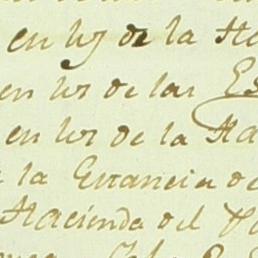 en los de la Ha
en los de las Es
en los de la Ha
la Estancia de
Hacienda del